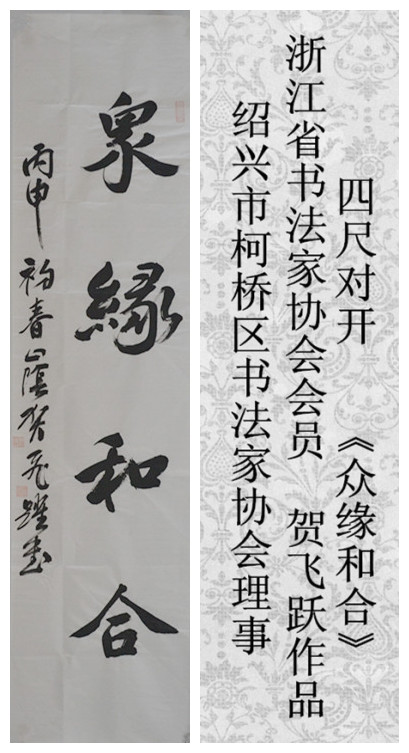 衆緣和合
丙申初春山陰賀飛躍書
四尺对开 《众缘和合》
浙江省书法家协会会员 贺飞跃作品
绍兴市柯桥区书法家协会理事